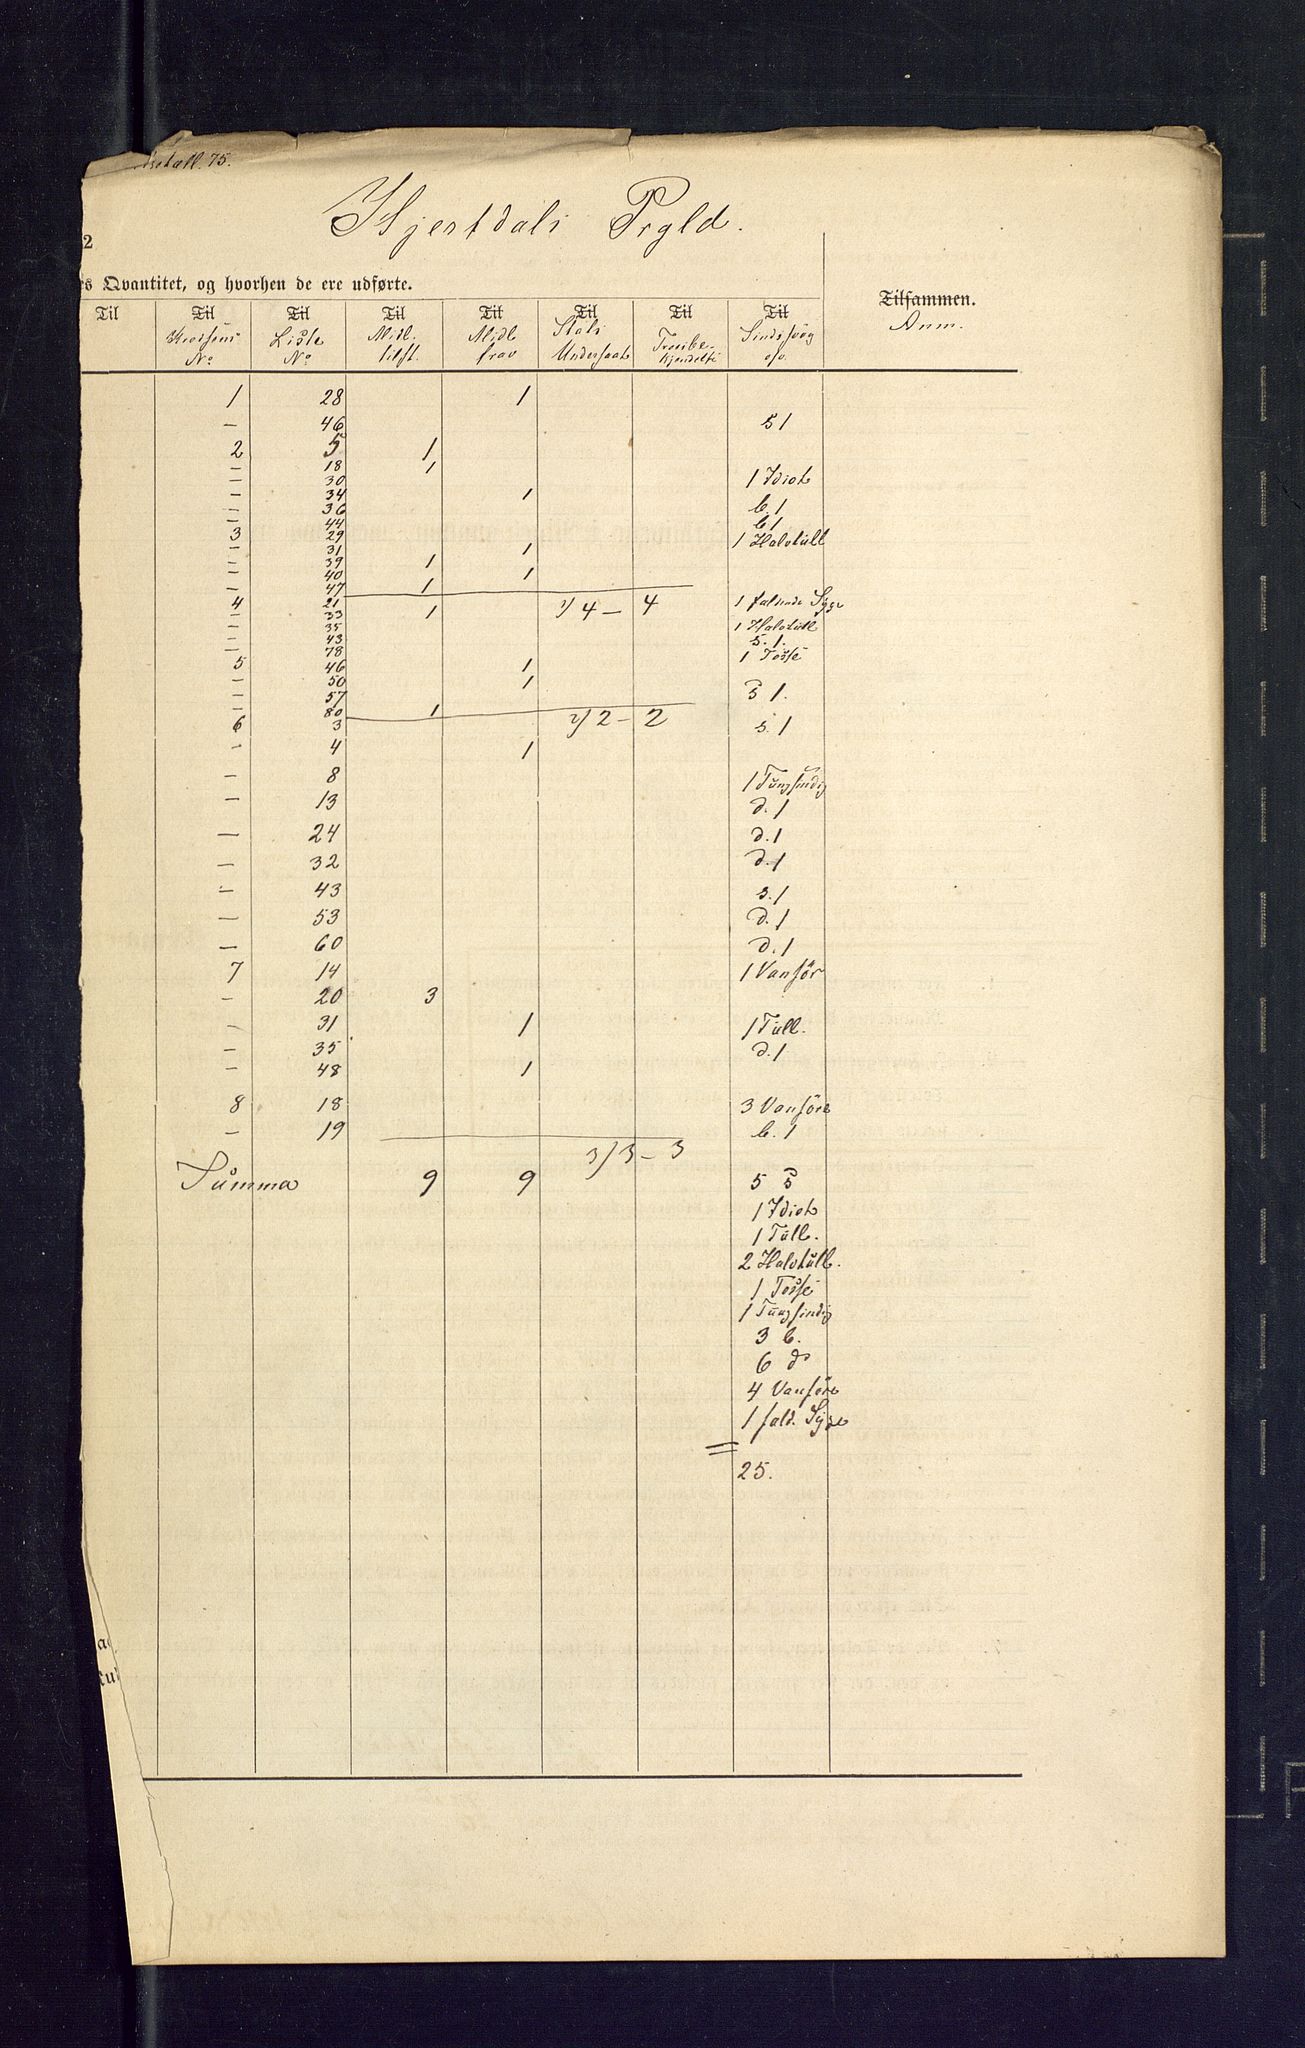 tall. 75.
Hjertdals Prgld.
2
s Qvantitet, og hvorhen de ere udførte.
Til Til Til Til Til Til Til Til Tilsammen.
Kredsens No Liste No Midl. tilst. Midl. frav Stats Undersaat Trosbe- kjendelse Sindssvag o.s.v. Anm.
1 28 1
— 46 s 1
2 5 1
— 18 1
— 30 1 Idiot
— 34 1
— 36 b. 1
— 44 b 1
3 29 1 Halvtull
— 31 1
— 39 1
— 40 1
— 47 1
4 21 1/ 4 — 4 1 faldende Syge
— 33 1
— 35 1 Halvtull
— 43 s. 1.
— 78 1 Tosse
5 46 1
— 50 1
— 57 s 1.
— 80 1
6 3 2/ 2 — 2 s. 1
— 4 1
— 8 1 Tungsindig
— 13 d. 1
— 24 d. 1
— 32 d. 1
— 43 s. 1
— 53 d. 1
— 60 d. 1
7 14 1 Vanför
— 20 3
— 31 1 1 Tull.
— 35 d. 1
— 48 1
8 18 3 Vanföre
— 19 b. 1
3/ 3 — 3
Summa 9 9 5 s
1 Idiot
1 Tull.
2 Halvtull.
1 Tosse
1 Tungsindig
3 b.
6 d
4 Vanföre
1 fald. Syge
25.